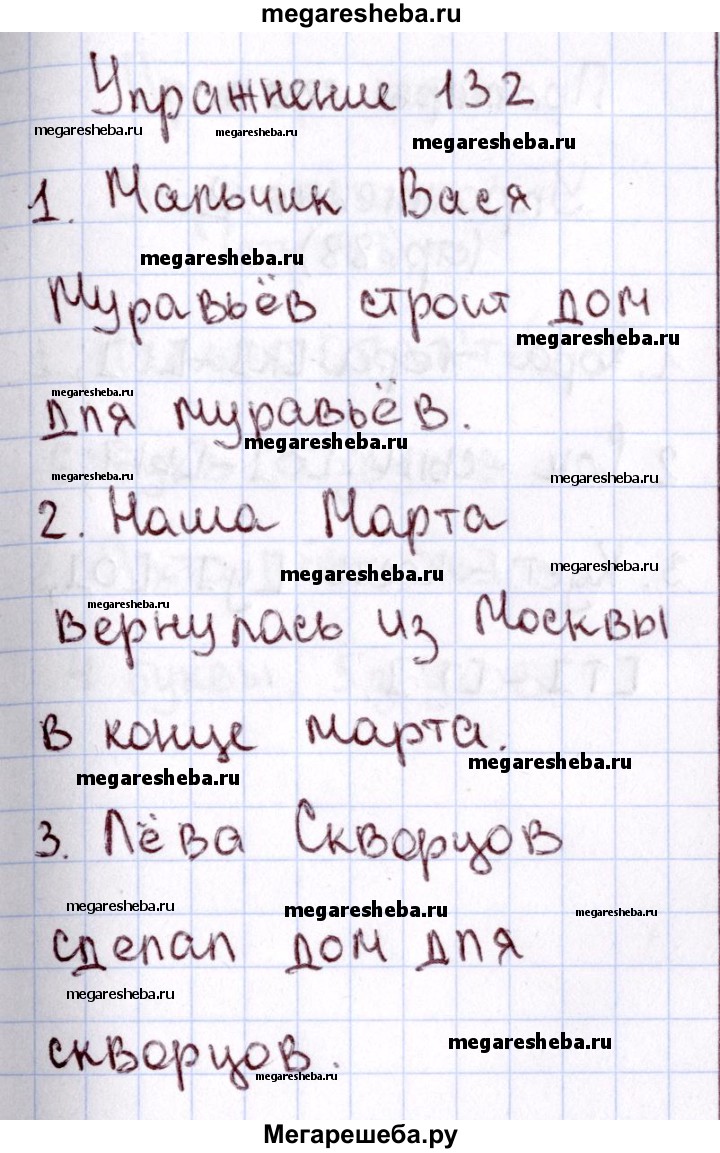 megaresheba.ru
Упражнение 132
megaresheba.ru megaresheba.ru megaresheba.ru
1. Мальчик Вася
megaresheba.ru
Муравьёв строит дом
megaresheba.ru
megaresheba.ru
для муравьёв.
megaresheba.ru
megaresheba.ru megaresheba.ru
2. Наша Марта
megaresheba.ru megaresheba.ru
megaresheba.ru
вернулась из Москвы
в конце марта.
megaresheba.ru megaresheba.ru
3. Лёва Скворцов
megaresheba.ru megaresheba.ru megaresheba.ru
сделал дом для
megaresheba.ru
скворцов.
megaresheba.ru
megaresheba.ru
Мегарешеба.ру